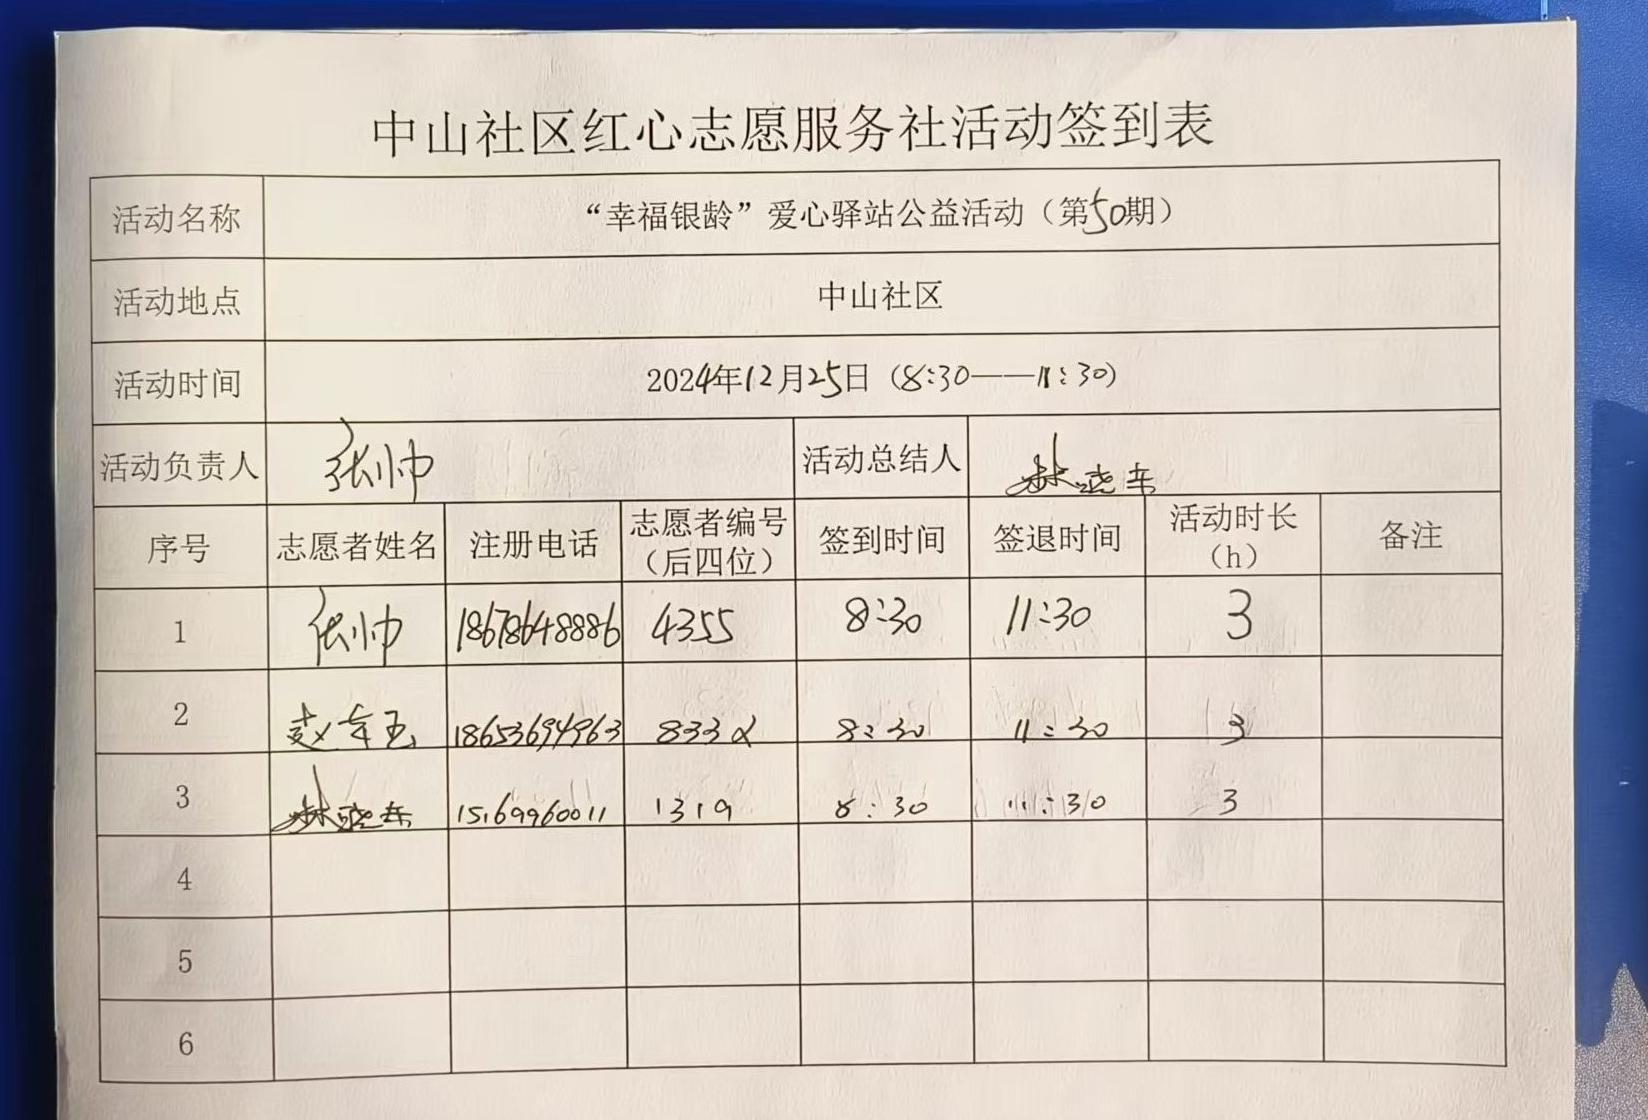 中山社区红心志愿服务社活动签到表
活动名称 “幸福银龄”爱心驿站公益活动（第50期）
活动地点 中山社区
活动时间 2024年12月25日（8:30——11:30）
活动负责人 张帅 活动总结人 林晓东
序号 志愿者姓名 注册电话 志愿者编号（后四位） 签到时间 签退时间 活动时长（h） 备注
1 张帅 18678648886 4355 8:30 11:30 3
2 18653694963 8332 8:30 11:30 3
3 林晓东 15169960011 1319 8:30 11:30 3
4
5
6